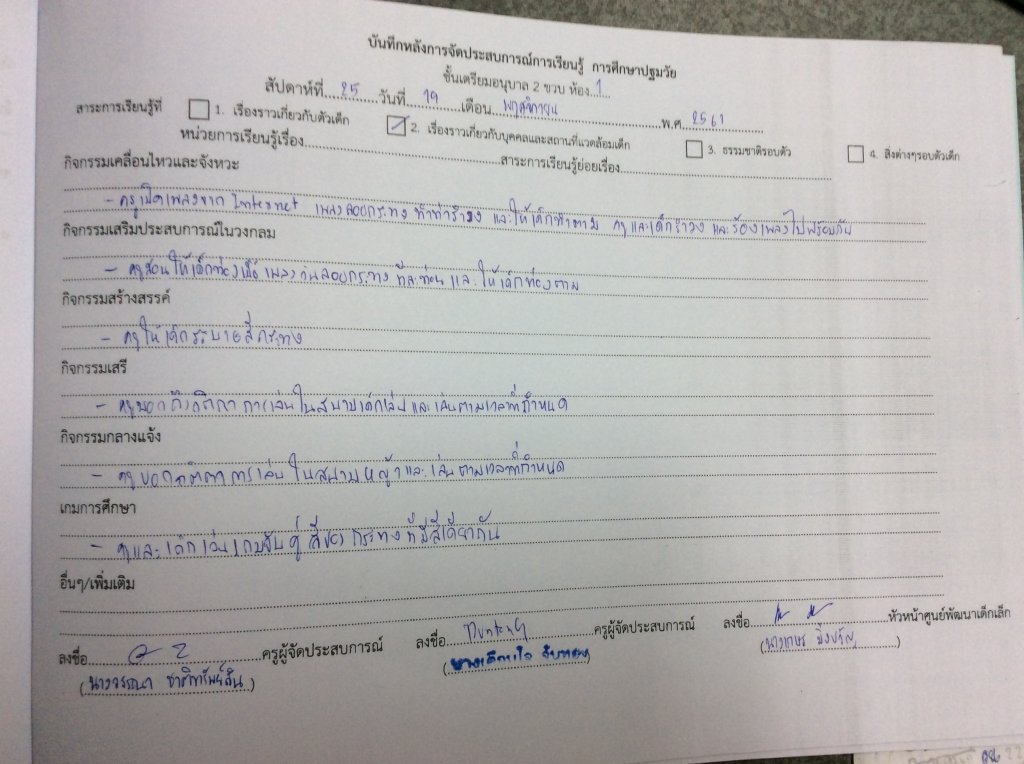 บันทึกหลังการจัดประสบการณ์การเรียนรู้ การศึกษาปฐมวัย
ชั้นเตรียมอนุบาล 2 ขวบ ห้อง...1...
สัปดาห์ที่...25...วันที่...19...เดือน...พฤศจิกายน...พ.ศ...2561
สาระการเรียนรู้ที่ 1. เรื่องราวเกี่ยวกับตัวเด็ก 2. เรื่องราวเกี่ยวกับบุคคลและสถานที่แวดล้อมเด็ก 3. ธรรมชาติรอบตัว 4. สิ่งต่างๆรอบตัวเด็ก
หน่วยการเรียนรู้เรื่อง...สาระการเรียนรู้ย่อยเรื่อง...
กิจกรรมเคลื่อนไหวและจังหวะ
- ครูเปิดเพลงจาก Internet เพลงลอยกระทง ทำท่ารำวง และให้เด็กทำตาม ครูและเด็กรำวง และร้องเพลงไปพร้อมกัน
กิจกรรมเสริมประสบการณ์ในวงกลม
- ครูสอนให้เด็กท่องเนื้อเพลงวันลอยกระทง ทีละท่อน และให้เด็กท่องตาม
กิจกรรมสร้างสรรค์
- ครูให้เด็กระบายสีกระทง
กิจกรรมเสรี
- ครูบอกถึงกติกา การเล่นในสนามเด็กเล่น และเล่นตามเวลาที่กำหนด
กิจกรรมกลางแจ้ง
- ครูบอกกติกาการเล่นในสนามหญ้าและเล่นตามเวลาที่กำหนด
เกมการศึกษา
- ครูและเด็กเล่นเกมจับคู่ สีของกระทงที่มีสีเดียวกัน
อื่นๆ/เพิ่มเติม
ลงชื่อ...ครูผู้จัดประสบการณ์ ลงชื่อ...ครูผู้จัดประสบการณ์ ลงชื่อ...หัวหน้าศูนย์พัฒนาเด็กเล็ก
(นางวรรณา ชาติทรัพย์สิน)